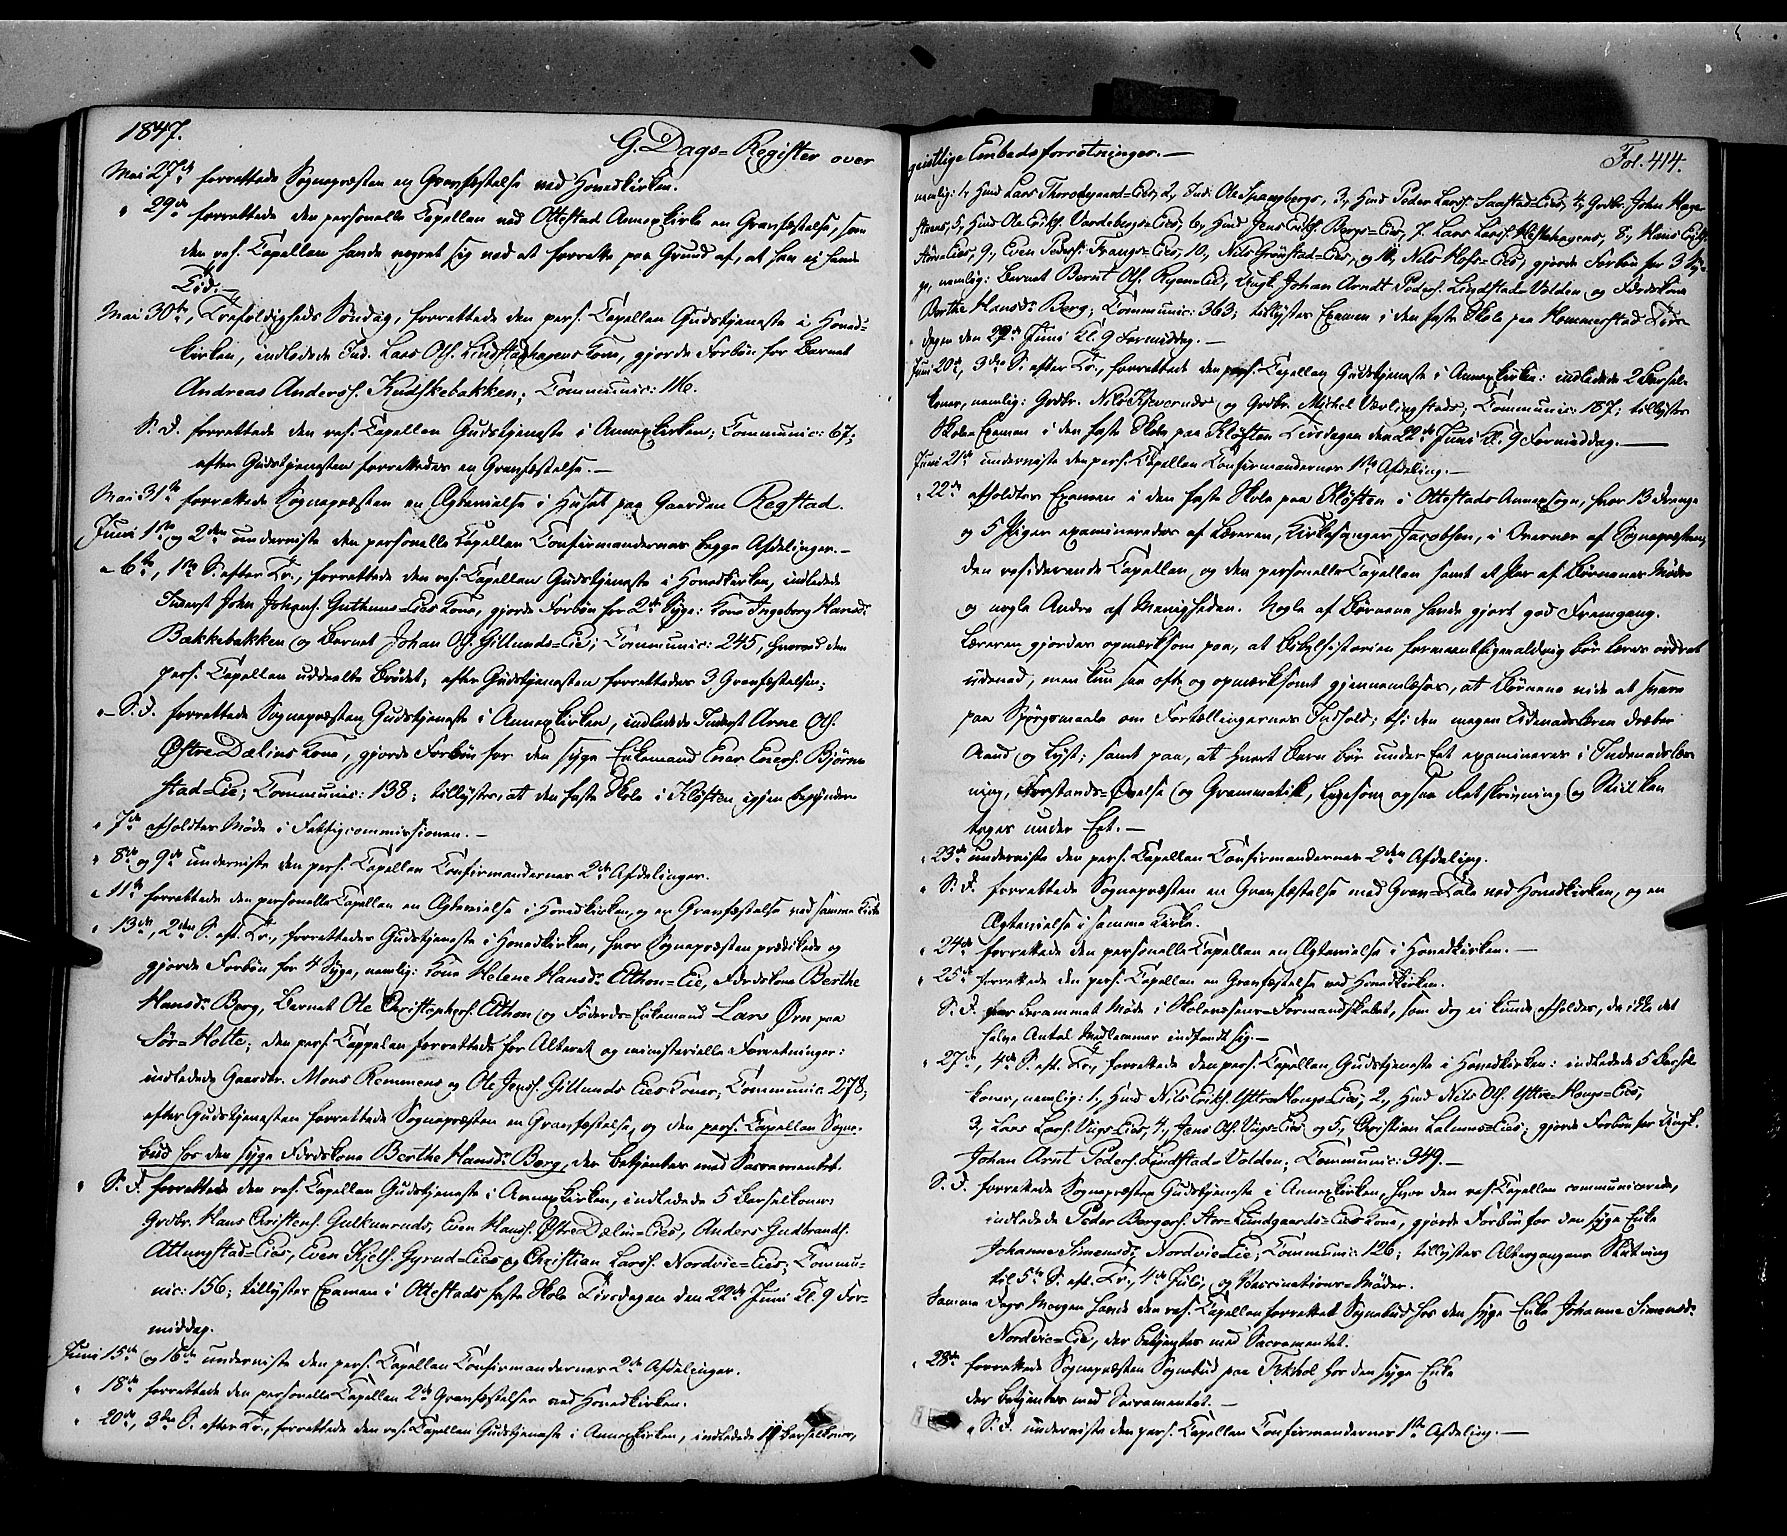 1847.
G. Dags=Register over
Mai 27de forrettede Sognepræsten en Gravfæstelse ved Hovedkirken.
" 29de forrettede den personelle Capellan ved Ottestad Annexkirke en Gravfæstelse, som
den res. Capellan havde vægret sig ved at forrette paa Grund af, at han ej havde
Tid.—
Mai 30te, Trefoldigheds Søndag, forrettede den pers. Capellan Gudstjeneste i Hoved-
kirken, indledede Ind. Lars Ols. Lindstadhagens Kone, gjorde Forbøn for Barnet
Andreas Anderss. Kudskebakken; Communic: 116.
S. D. forrettede den res. Capellan Gudstjeneste i Annexkirken; Communic: 67;
efter Gudstjenesten forrettedes en Gravfæstelse.—
Mai 31te forrettede Sognepræsten en Ægtevielse i Huset paa Gaarden Regstad.
Juni 1ste og 2den underviste den personelle Capellan Confirmandernes begge Afdelinger.—
" 6te, 1ste S. efter Tr., forrettede den res. Capellan Gudstjeneste i Hovedkirken, indledede
Inderst John Johans. Guthuus=Eies Kone, gjorde Forbøn for 2de Syge: Kone Ingeborg Hansdr.
Bakkebakken og Barnet Johan Ols. Gillunds=Eie; Communic: 245, hvorved den
pers. Capellan uddeelte Brødet; efter Gudstjenesten forrettedes 3 Gravfæstelser;
"—S. D. forrettede Sognepræsten Gudstjeneste i Annexkirken, indledede Inderst Arne Ols.
Østre Dælins Kone, gjorde Forbøn for den syge Enkemand Ener Eners. Bjørne-
stad=Eie; Communic: 138; tillystes, at den faste Skole i Kløften igjen begynder
" 7de afholdtes Møde i Fattigcommissionen.—
" 8de og 9de underviste den pers. Capellan Confirmandernes 2de Afdelinger.
" 11te forrettede den personelle Capellan en Ægtevielse i Hovedkirken, og en Gravfæstelse ved samme Kirke
" 13de, 2den S. eft. Tr., forrettedes Gudstjeneste i Hovedkirken, hvor Sognepræsten prædikede og
gjorde Forbøn for 4 Syge, nemlig: Kone Helene Hansdr. Atthon=Eie, Fdrdskone Berthe
Hansdr. Berg, Barnet Ole Christophers. Atthon og Føderds=Enkemand Lars Ørn paa
Sør=Holte; den pers. Cappelan forrettede for Alteret og ministerielle Forretninger:
indledede Gaardbr. Mons Remmens og Ole Jenss. Gillunds Eies Koner; Communic: 278;
efter Gudstjenesten forrettede Sognepræsten en Gravfæstelse, og den pers. Capellan Sogne-
bud hos den syge Fdrdskone Berthe Hansdr. Berg, der betjentes med Sacramentet.
" S. D. forrettede den res. Capellan Gudstjeneste i Annexkirken, indledede 5 Barselkoner:
Grdbr. Hans Christens. Gulkunruds, Even Hanss. Østre Dælin=Eies, Anders Gudbrands.
Attungstad=Eies, Even Kjels. Gyrud=Eies og Christian Larss. Nordvie=Eies; Commu-
nic: 156; tillystes Examen i Ottestads faste Skole Tirsdagen den 22de Juni Kl. 9 For-
middag.
Juni 15de og 16de underviste den pers. Capellan Confirmandernes 2de Afdelinger.
" 18de forrettede den personelle Capellan 2de Gravfæstelser ved Hovedkirken.
" 20de, 3die S. efter Tr., forrettede den res. Capellan Gudstjeneste i Annexkirken, indledede 11 Barselkoner,
geistlige Embedsforretninger.—
Fol. 414.
nemlig: 1, Hmd Lars Thorsgaard=Eies, 2, Ind. Ole Spangbergs, 3, Hmd Peder Larss. Saastad=Eies, 4, Grdbr. John Hage-
stens, 5, Hmd Ole Eriks. Vardebergs=Eies, 6, Hmd Jens Eriks. Bergs=Eies, 7, Lars Larss. Hestehagens, 8, Hans
Eies, 9, Even Peders. Frangs=Eies, 10, Nils Grønstad=Eies, og 11, Nils Hofs=Eies, gjorde Forbøn for 3 Sy-
ge, nemlig: Barnet Bernt Ols. Ryen=Eie, Ungk. Johan Arndt Peders. Lindstad=Volden og Fdrdskone
Berthe Hansdr. Berg; Communic: 363; tillystes Examen i den faste Skole paa Hommerstad Tirs-
dagen den 29de Juni Kl. 9 Formiddag.—
Juni 20de, 3die S. efter Tr., forrettede den pers. Capellan Gudstjeneste i Annexkirken: indledede 2 Barsel-
koner, nemlig: Grdbr. Nils Kjeveruds og Grdbr. Michel Værlingstads; Communic: 187; tillystes
Skole Examen i den faste Skole paa Kløften Tirsdagen den 22de Juni Kl. 9 Formiddag.—
Juni 21de underviste den pers. Capellan Confirmandernes 1ste Afdeling.—
" 22de afholdtes Examen i den faste Skole paa Kløften i Ottestads Annexsogn, hvor 13 Drenge
og 5 Piger examineredes af Læreren, Kirkesanger Jacobsen, i Overvær af Sognepræsten,
den residerende Capellan og den personelle Capellan samt et Par af Børnenes Mødre
og nogle Andre af Menigheden. Nogle af Børnene havde gjort god Fremgang.
Læreren gjordes opmærksom paa, at Bibelhistorien formeentlig aldrig bør læres ordret
udenad, men kun saa ofte og opmærksomt gjennemlæses, at Børnene vide at svare
paa Spørgsmaale om Fortællingernes Indhold; thi den megen Udenadslæren dræber
Aand og Lyst; samt paa, at hvert Barn bør under Eet examineres i Indenadslæs-
ning, Forstands=Øvelse og Grammatik, ligesom ogsaa Retskrivning og Stilken
tages under Eet.—
" 23de underviste den pers. Capellan Confirmandernes 2den Afdeling.
" S. D. forrettede Sognepræsten en Gravfæstelse med Grav=Tale ved Hovedkirken, og en
Ægtevielse i samme Kirke.
" 24de forrettede den personelle Capellan en Ægtevielse i Hovedkirken.—
" 25de forrettede den pers. Capellan en Gravfæstelse ved Hovedkirken.
S. D. var berammet Møde i Skolevæsens=Formandskabet, som dog ei kunde afholdes, da ikke det
halve Antal Medlemmer indfandt sig.—
" 27de, 4de S. eft. Tr., forrettede den pers. Capellan Gudstjeneste i Hovedkirken: indledede 5 Barsel-
koner, nemlig: 1, Hmd Nils Eriks. Yttre Haugs=Eies, 2, Hmd Nils Ols. Yttre=Haugs=Eies,
3, Lars Larss. Viigs=Eies, 4, Jens Ols. Viigs=Eies og 5, Christian Lalums=Eies; gjorde Forbøn for Ungk.
Johan Arnt Peders. Lindstad=Volden; Communic: 349.—
S. D. forrettede Sognepræsten Gudstjeneste i Annexkirken, hvor den res. Capellan communicerede,
indledede Peder Borgers. Stor=Lundgaards=Eies Kone, gjorde Forbøn for den syge Enke
Johanne Simensdr. Nordvie=Eie; Communic: 126; tillystes Altergangens Slutning
til 5te S. eft. Tr., 4de Juli, og Vaccinations=Møder.
Samme Dags Morgen havde den res. Capellan forrettet Sognebud hos den syge Enke Johanne Simensdr.
Nordvie=Eie, der betjentes med Sacramentet.
" 28de forrettede Sognepræsten Sognebud paa Tokhol hos den syge Enke
der betjentes med Sacramentet.—
" S. D. underviste den pers. Capellan Confirmandernes 1ste Afdeling.—